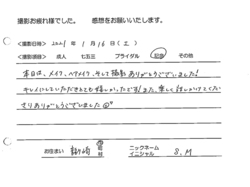 撮影お疲れ様でした。 感想をお願いいたします。
<撮影日時> 2021年 1月16日(土)
<撮影項目> 成人 七五三 ブライダル 記念 その他
本日は、メイク、ヘアメイク、そして撮影ありがとうございました!
キレイにしていただきとても嬉しかったです!また、楽しく話しかけてくださりありがとうございました
お住まい 龍ケ崎 市 ニックネーム イニシャル S.M